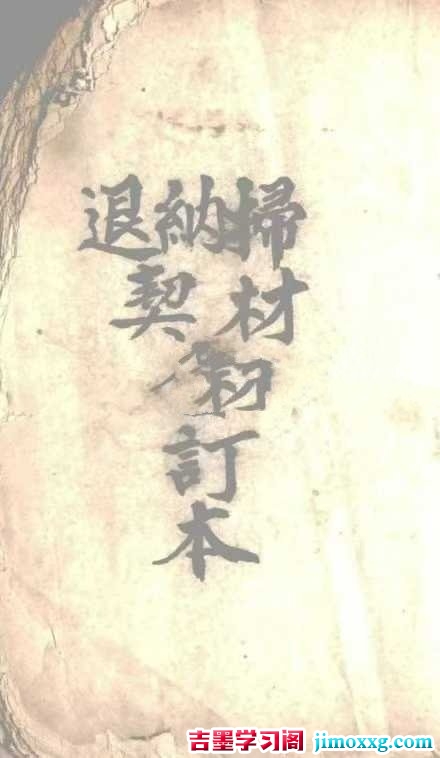 掃材
納契
退
訂本
吉墨学习阁 jimoxxg.com